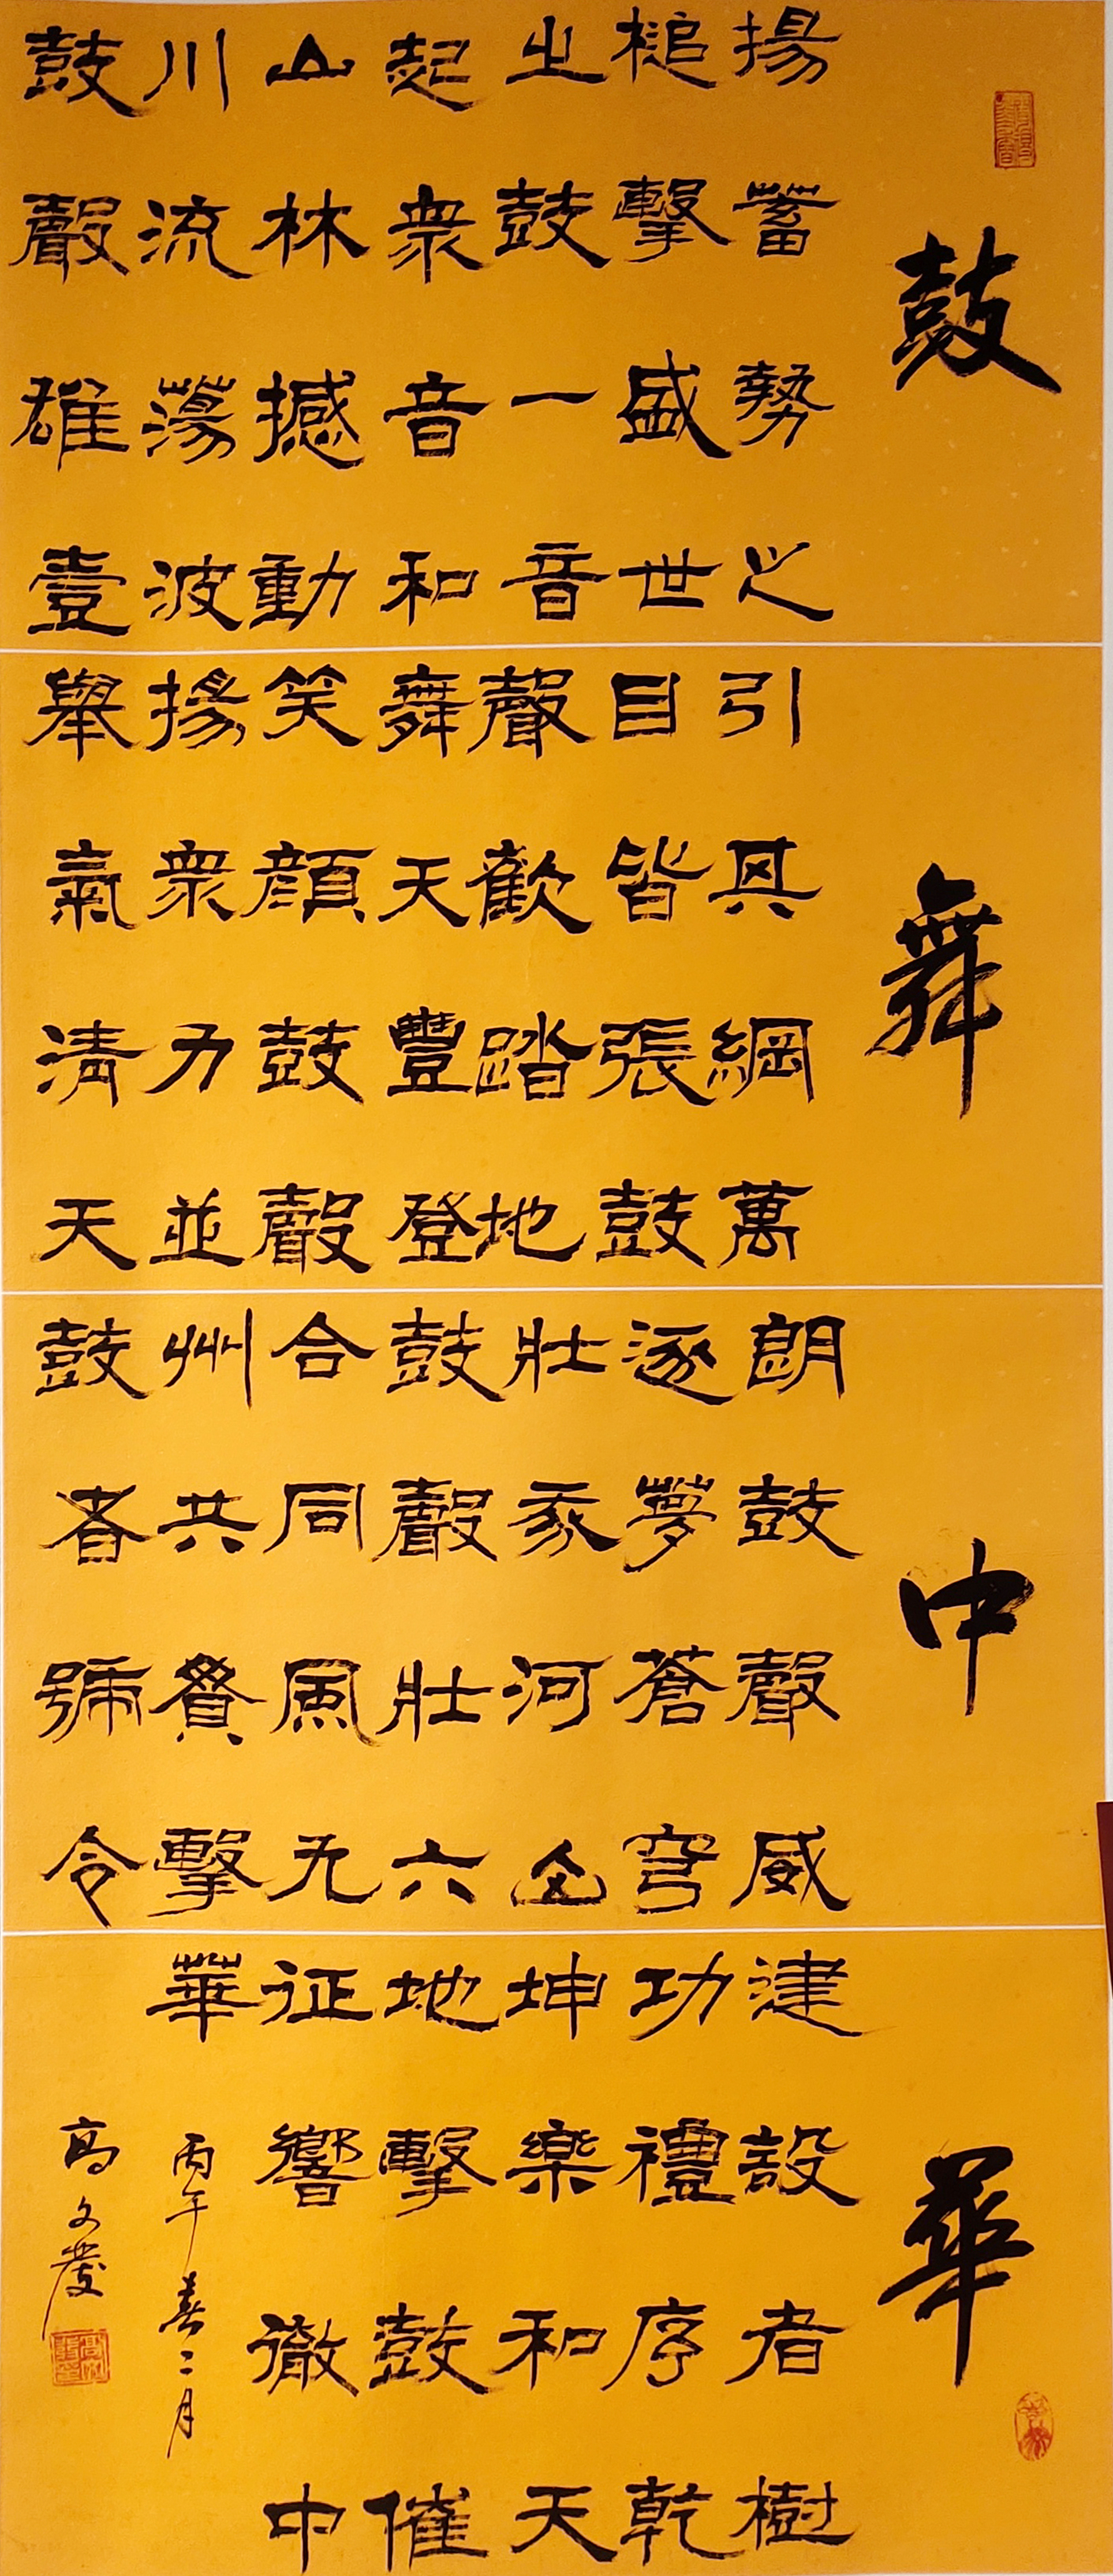 鼓舞中華
揚蓄勢之
槌擊盛世
之鼓一音
起衆音和
山林撼動
川流蕩波
鼓聲雄壹
引其綱萬
目皆張鼓
聲歡踏地
舞天豐登
笑顔鼓聲
揚衆力並
舉氣清天
朗鼓聲威
逐夢蒼穹
壯我河山
鼓聲壯六
合同風九
州共賛擊
鼓者號令
建設者樹
功禮序乾
坤樂和天
地擊鼓催
征響徹中
華
丙午春二月
高文慶